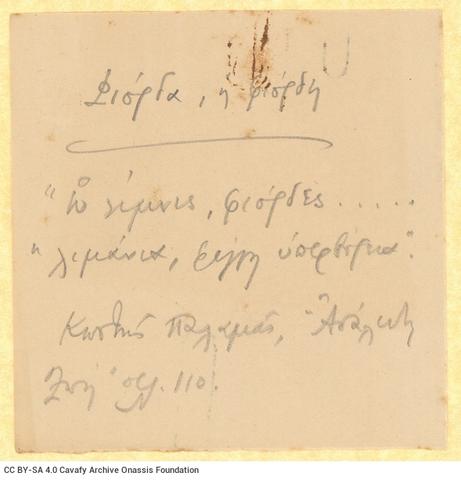 Φιόρδα, η φιόρδη
“Ὦ λίμνες, φιόρδες.....
“λιμάνια, φέγγη ὑπερβόρεια”.
Κωστῆς Παλαμᾶς, “Ἀσάλευτη
Ζωή” σελ. 110.
CC BY-SA 4.0 Cavafy Archive Onassis Foundation